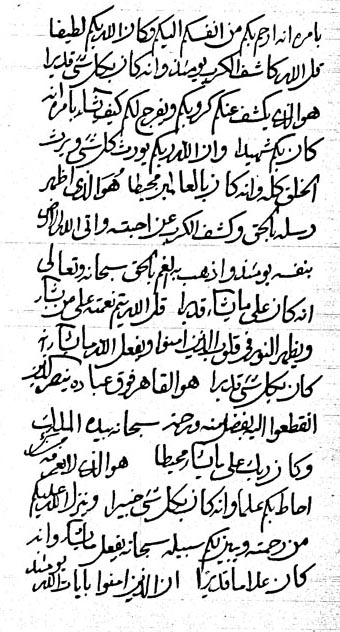 بامره انه ارحم بكم من انفسكم اليكم وكان الله بكم لطيفا
قل الله كاشف الكرب يومئذ وانه كان بكل شئ قديرا
هو الذي يكشف عنكم كروبكم ويفرج لكم كيف يشاء بامره انه
كان بكم شهيدا وان الله ربكم يورث كل شئ ويرث
الخلق كله وانه كان بالعالمين محيطا هو الذي اظهر
رسله بالحق وكشف الكرب عن احبته واتى الله
بنفسه يومئذ واذهب بالحق سبحانه وتعالى
انه كان على ما يشاء قديرا قل الله يتم نعمته على من يشاء
ويظهر النور في قلوب الذين امنوا ويفعل الله ما يشاء انه
كان بكل شئ قديرا هو القاهر فوق عباده ينصر الذين
انقطعوا اليه بفضل منه ورحمة سبحانه بيده الملك
وكان ربك على ما يشاء محيطا هو الذي
احاط بكم علما وانه كان بكل شئ خبيرا وينزل الله عليكم
من رحمته ويهديكم سبيله سبحانه يفعل ما يشاء وانه
كان علاما قديرا ان الذين امنوا بايات الله يومئذ